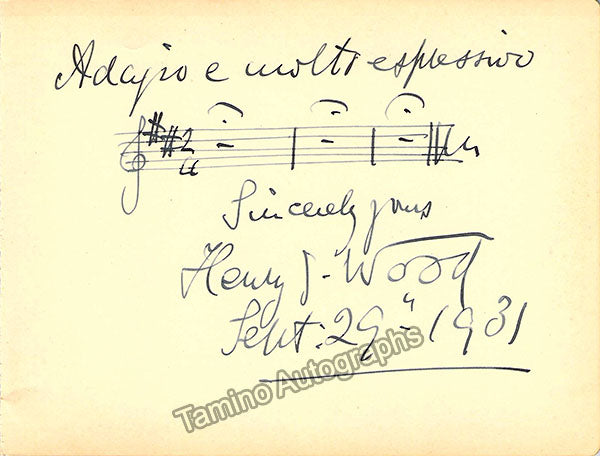 Adagio e molto espressivo
Sincerely yours
Henry J. Wood
Sept: 29th 1931
Tamino Autographs